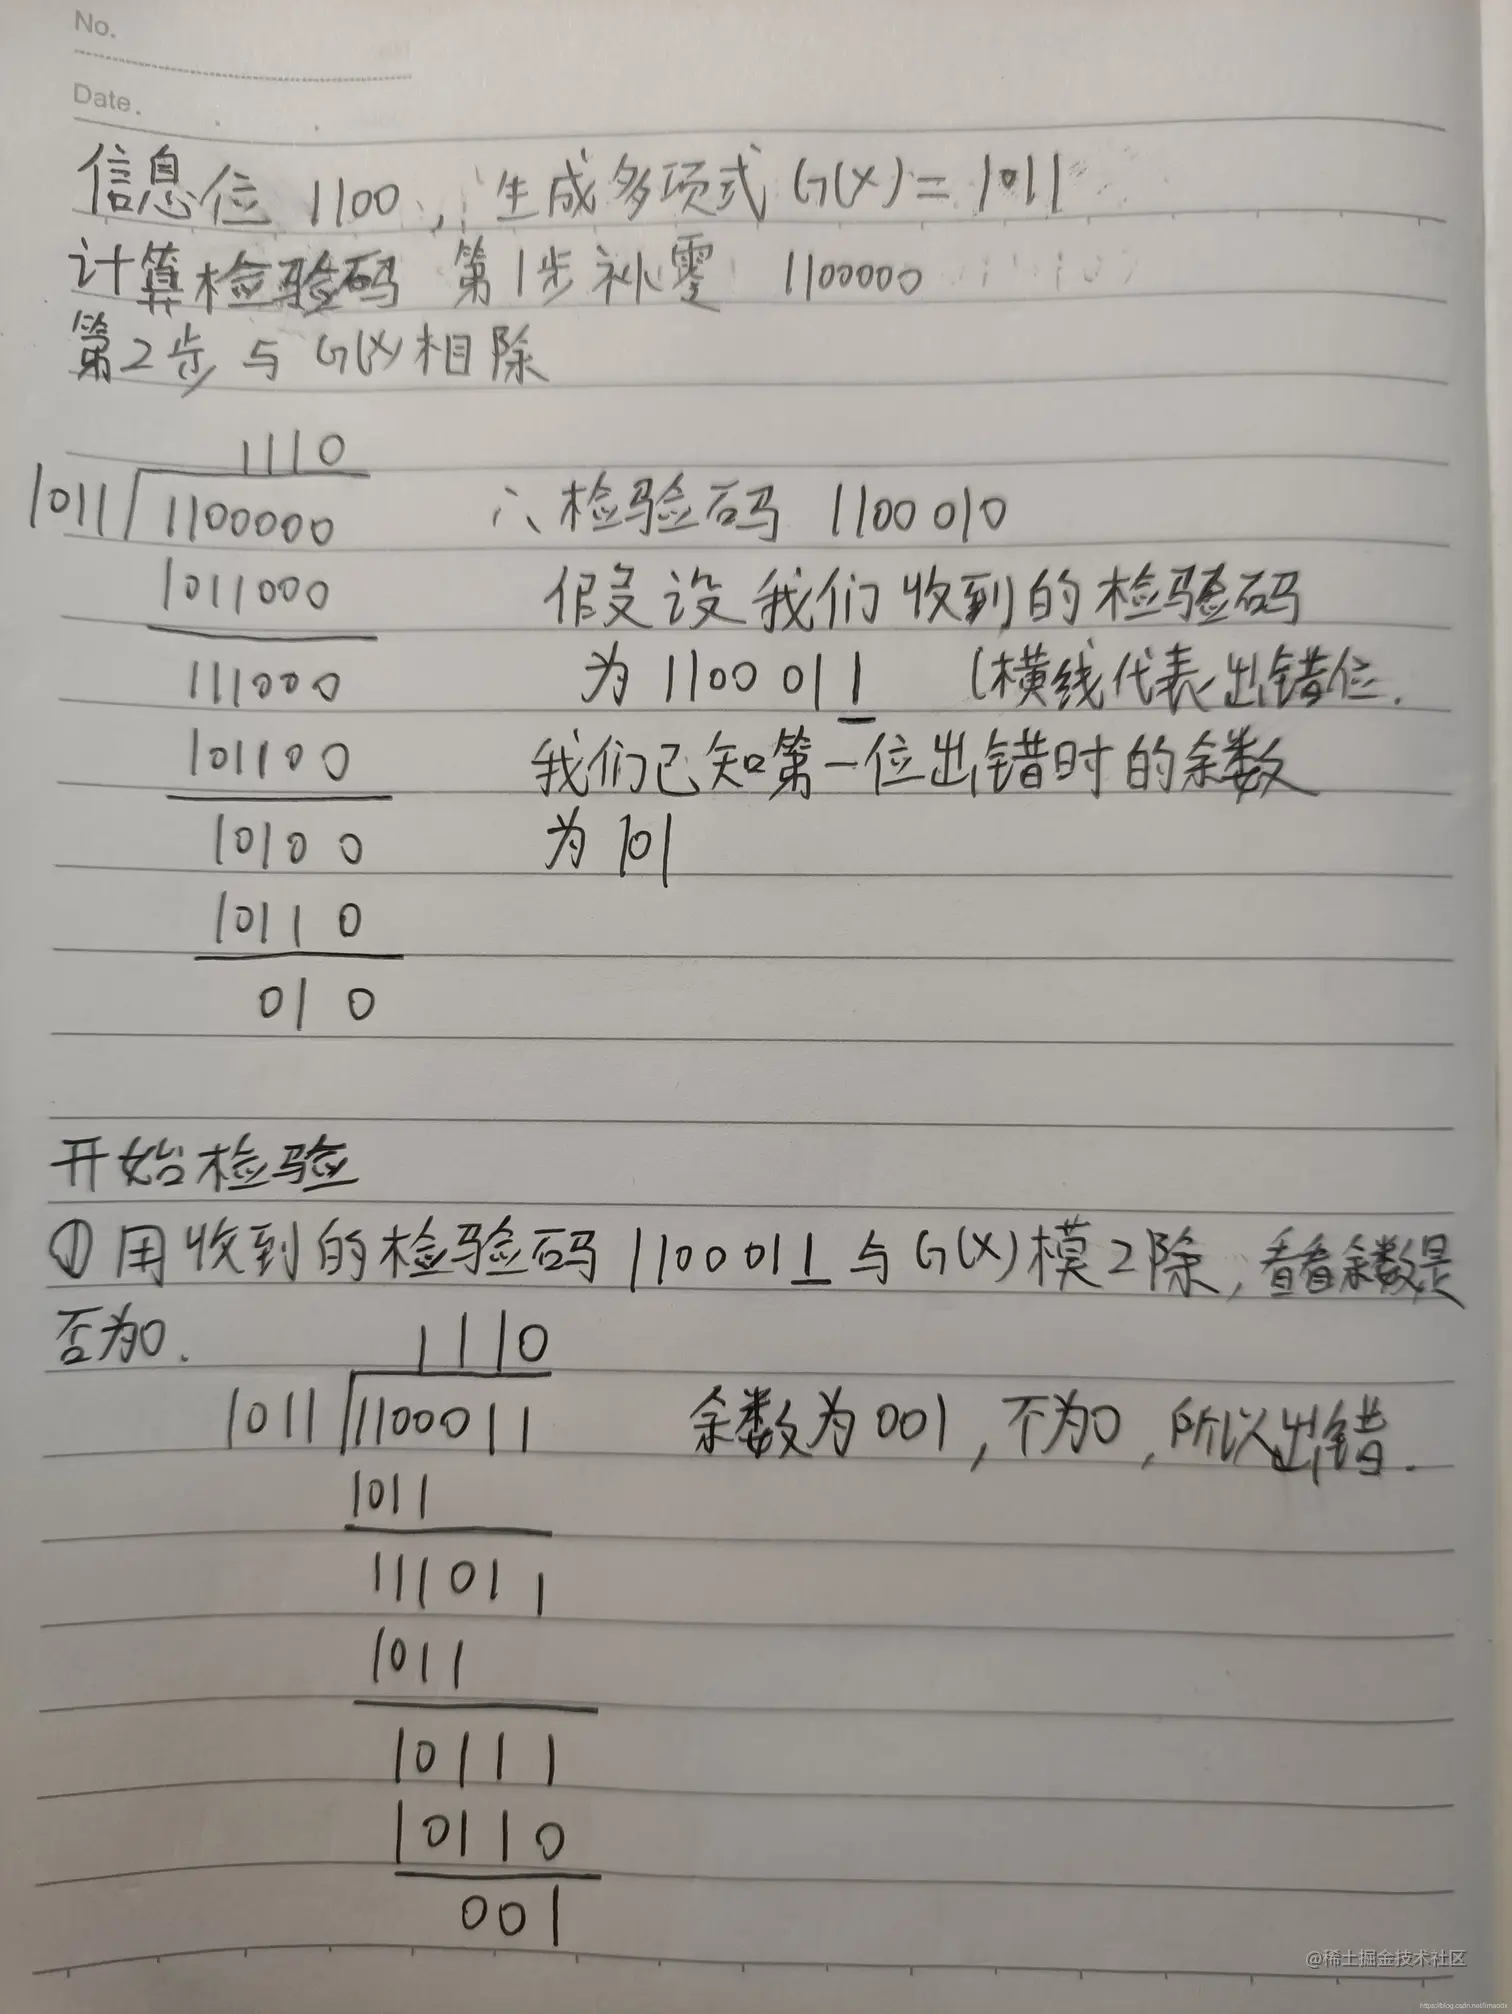 No.
Date.
信息位 1100, 生成多项式 G(X) = 1011
计算检验码 第1步补零 1100000
第2步 与 G(X) 相除
1110
1011 1100000
∴ 检验码 1100010
1011000
假设我们收到的检验码
111000
为 1100011 (横线代表出错位.
101100
我们已知第一位出错时的余数
10100
为 101
10110
010
开始检验
① 用收到的检验码 1100011 与 G(X) 模2除, 看看余数是
否为0.
1110
1011 1100011
余数为001, 不为0, 所以出错.
1011
111011
1011
10111
10110
001
@稀土掘金技术社区